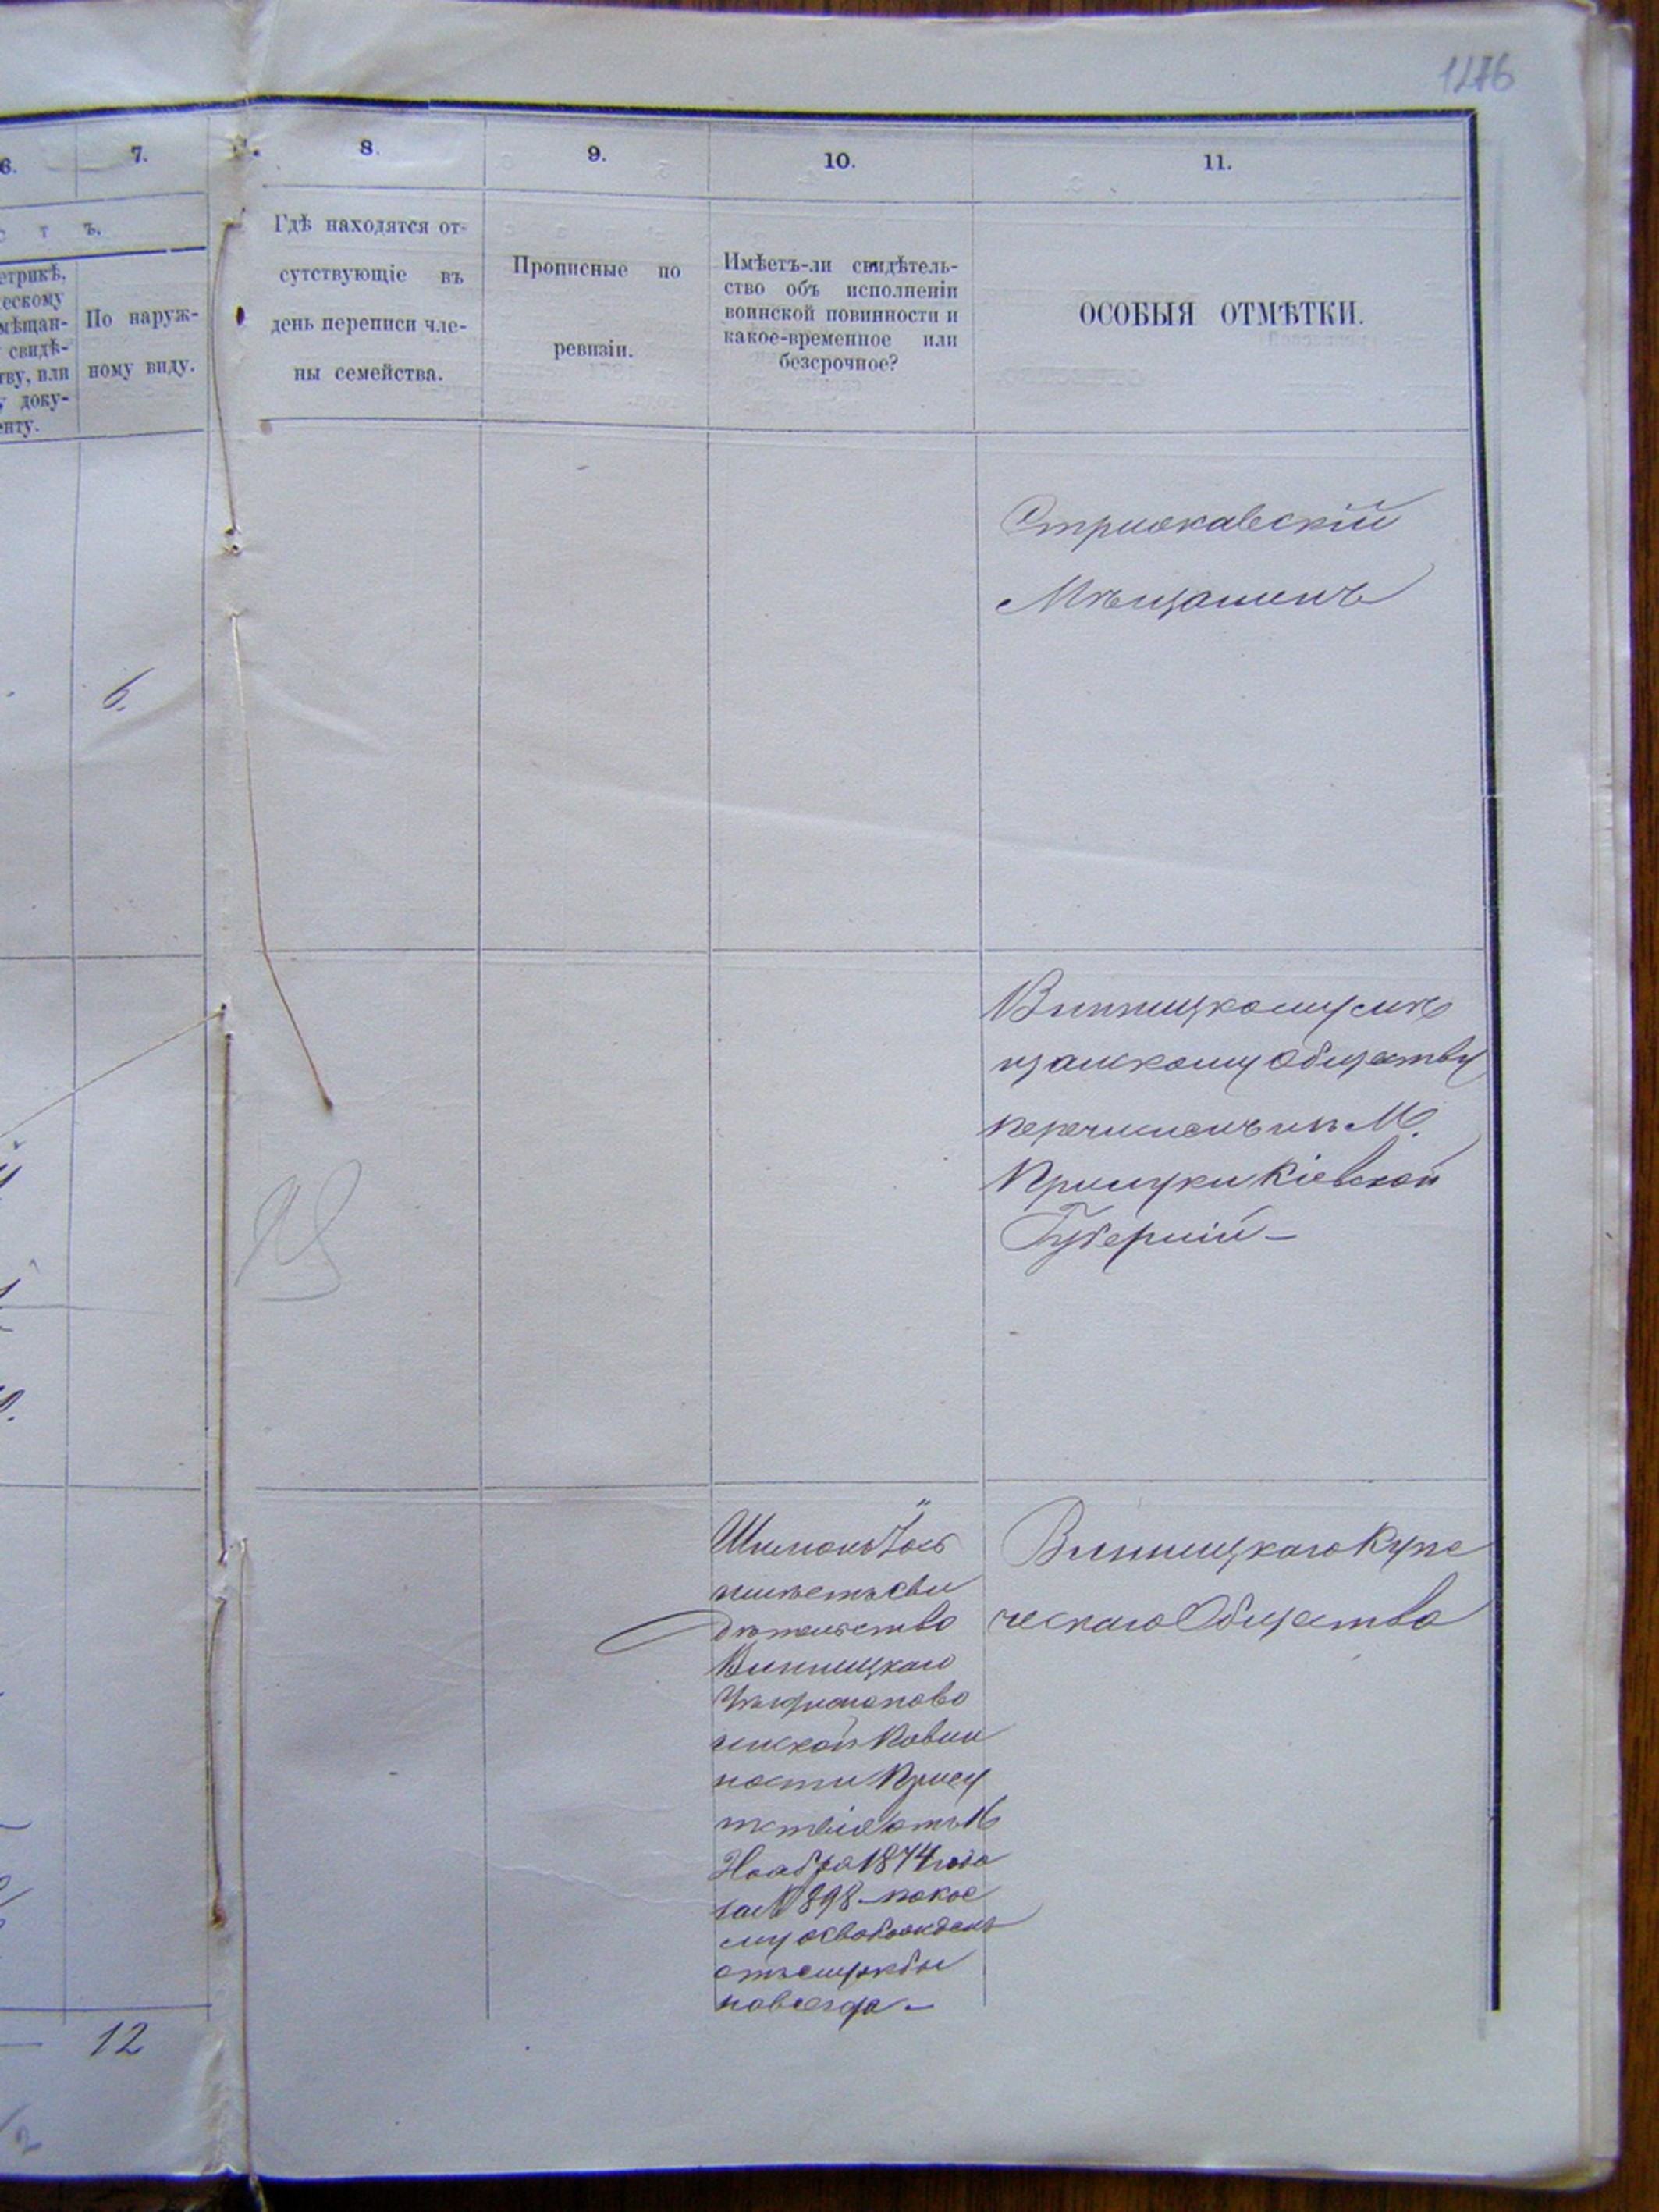 1276
6.
7.
8.
9.
10.
11.
с т ъ.
етрикѣ,
ескому
мѣщан-
свидѣ-
тву, или
у доку-
енту.
По наруж-
ному виду.
Гдѣ находятся от-
сутствующіе въ
день переписи чле-
ны семейства.
Прописные по
ревизіи.
Имѣетъ-ли свидѣтель-
ство объ исполненіи
воинской повинности и
какое-временное или
безсрочное?
ОСОБЫЯ ОТМѢТКИ.
Стрижавскій
Мѣщанинъ
6.
Винницкому мѣ
щанскому Обществу
перечисленъ изъ М.
Прилуки Кіевской
Губерній —
Шимонъ
имѣетъ сви
дѣтельство
Винницкаго
инской Повин
ности Прису
тствія отъ 16
Ноября 1874 года
за № 898 — по кое
му освобожденъ
отъ службы
навсегда. —
Винницкаго Купе
ческаго Общества
12